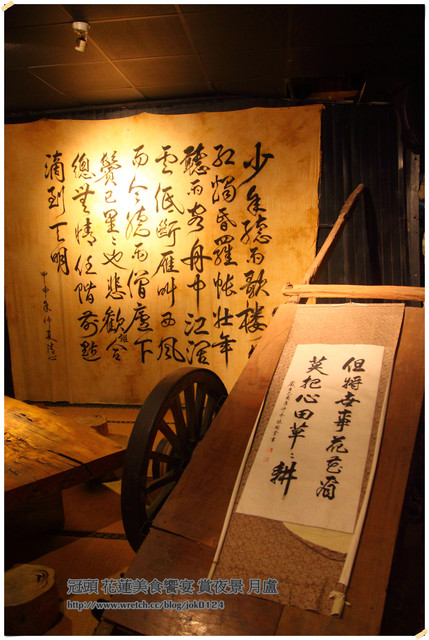 少年聽雨歌樓上
紅燭昏羅帳壯年
聽雨客舟中江闊
雲低斷雁叫西風
而今聽雨僧廬下
鬢已星〻也悲歡離合
總無情任階前點
滴到天明
甲申年仲夏
但將世事花花看
莫把心田草〻耕
冠頭 花蓮美食饗宴 賞夜景 月廬
http://www.wretch.cc/blog/jok0124